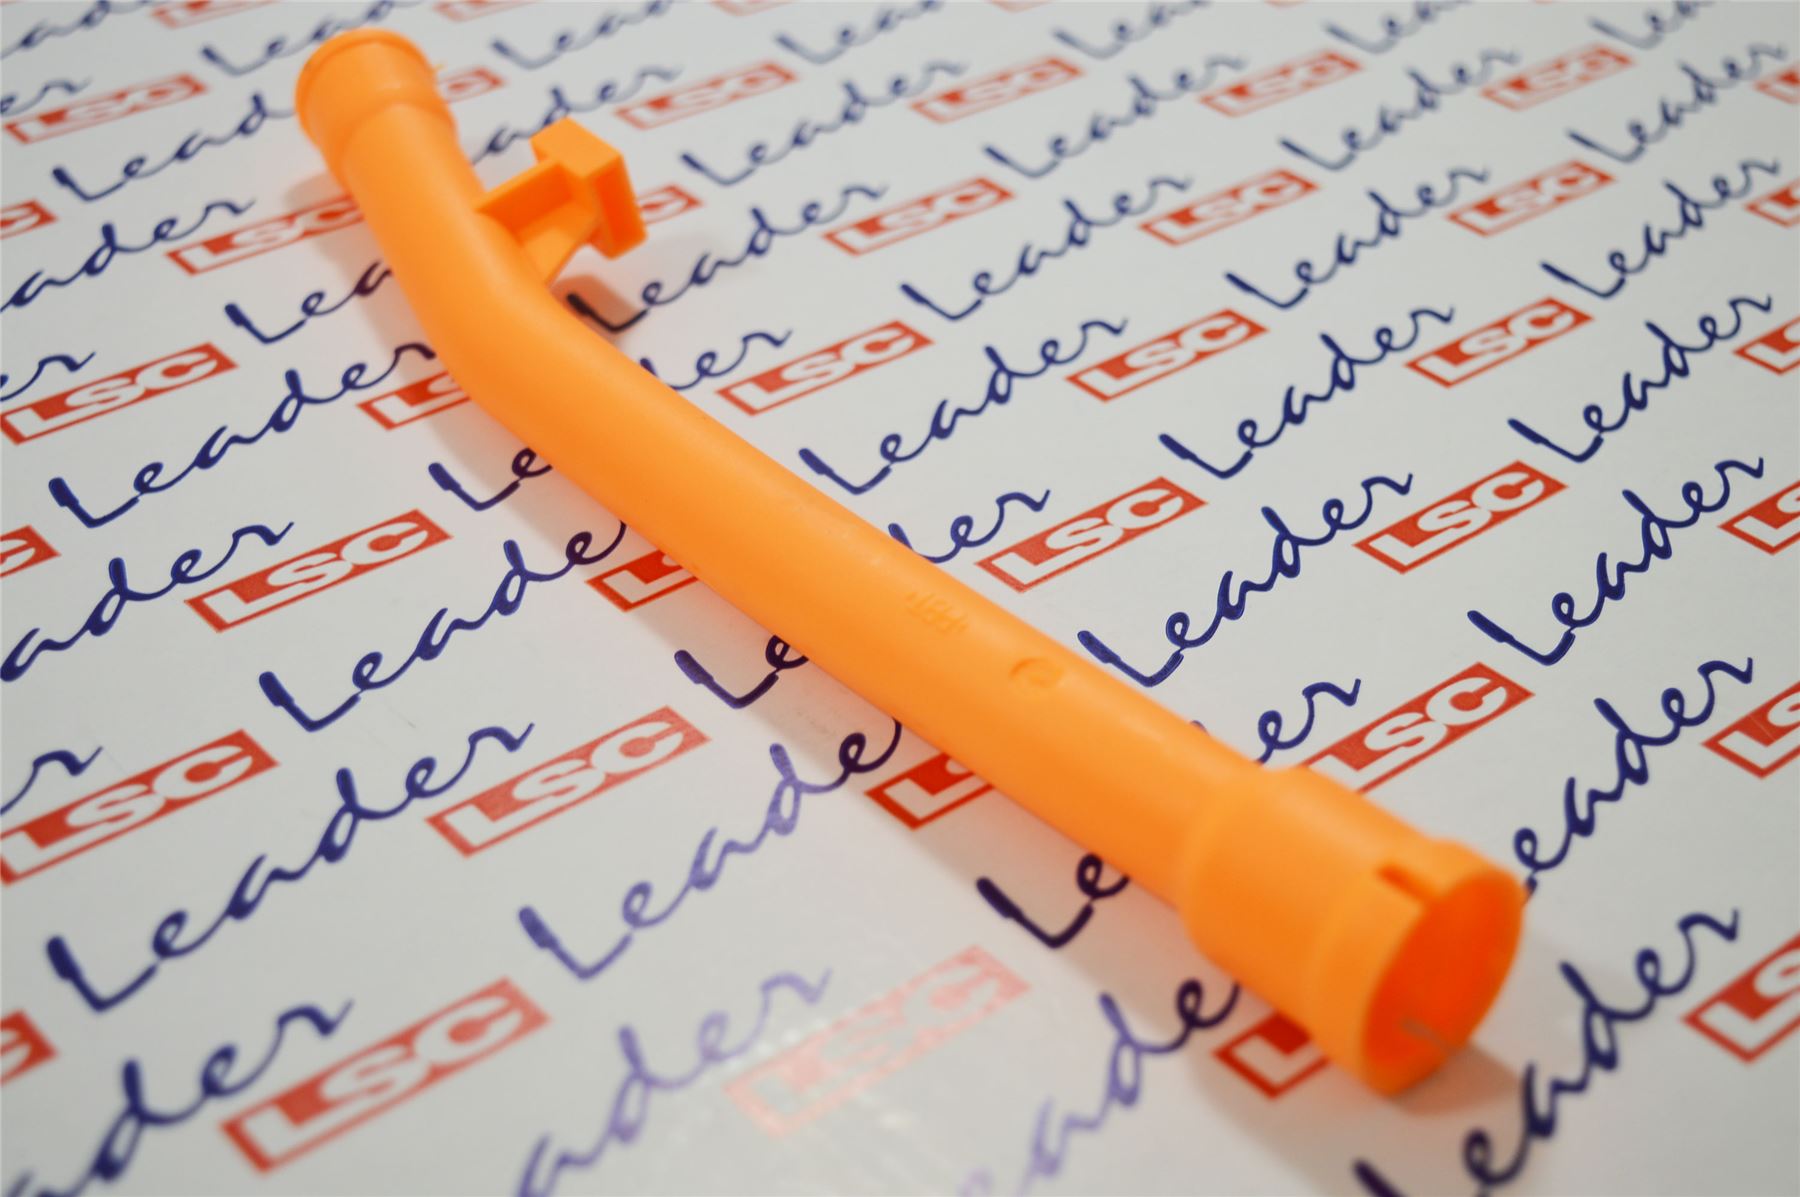 Leader LSC Leader LSC Leader LSC Leader LSC
Leader LSC Leader LSC Leader LSC Leader LSC
Leader LSC Leader LSC Leader LSC Leader LSC
Leader LSC Leader LSC Leader LSC Leader LSC
Leader LSC Leader LSC Leader LSC Leader LSC
Leader LSC Leader LSC Leader LSC